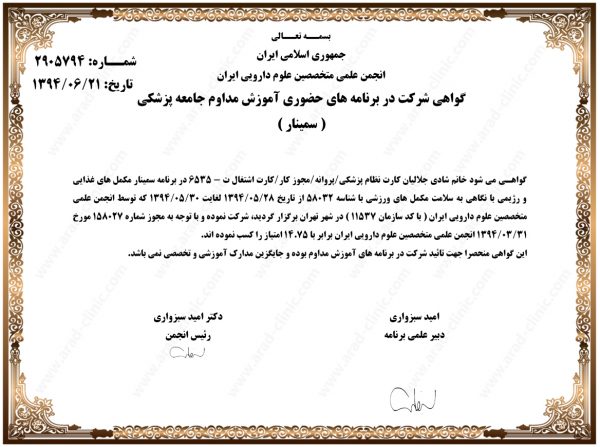 بسمه تعالی
جمهوری اسلامی ایران
انجمن علمی متخصصین علوم دارویی ایران
شماره: ۲۹۰۵۷۹۴
تاریخ: ۱۳۹۴/۰۶/۲۱
گواهی شرکت در برنامه های حضوری آموزش مداوم جامعه پزشکی
( سمینار )
گواهی می شود خانم شادی جلالیان کارت نظام پزشکی/پروانه/مجوز کار/کارت اشتغال ت - ۶۵۳۵ در برنامه سمینار مکمل های غذایی
و رژیمی با نگاهی به سلامت مکمل های ورزشی با شناسه ۵۸۰۳۲ از تاریخ ۱۳۹۴/۰۵/۲۸ لغایت ۱۳۹۴/۰۵/۳۰ که توسط انجمن علمی
متخصصین علوم دارویی ایران ( با کد سازمان ۱۱۵۳۷ ) در شهر تهران برگزار گردید، شرکت نموده و با توجه به مجوز شماره ۱۵۸۰۲۷ مورخ
۱۳۹۴/۰۳/۳۱ انجمن علمی متخصصین علوم دارویی ایران برابر با ۱۴.۷۵ امتیاز را کسب نموده اند.
این گواهی منحصرا جهت تائید شرکت در برنامه های آموزش مداوم بوده و جایگزین مدارک آموزشی و تخصصی نمی باشد.
امید سبزواری
دبیر علمی برنامه
دکتر امید سبزواری
رئیس انجمن
www.arad-clinic.com